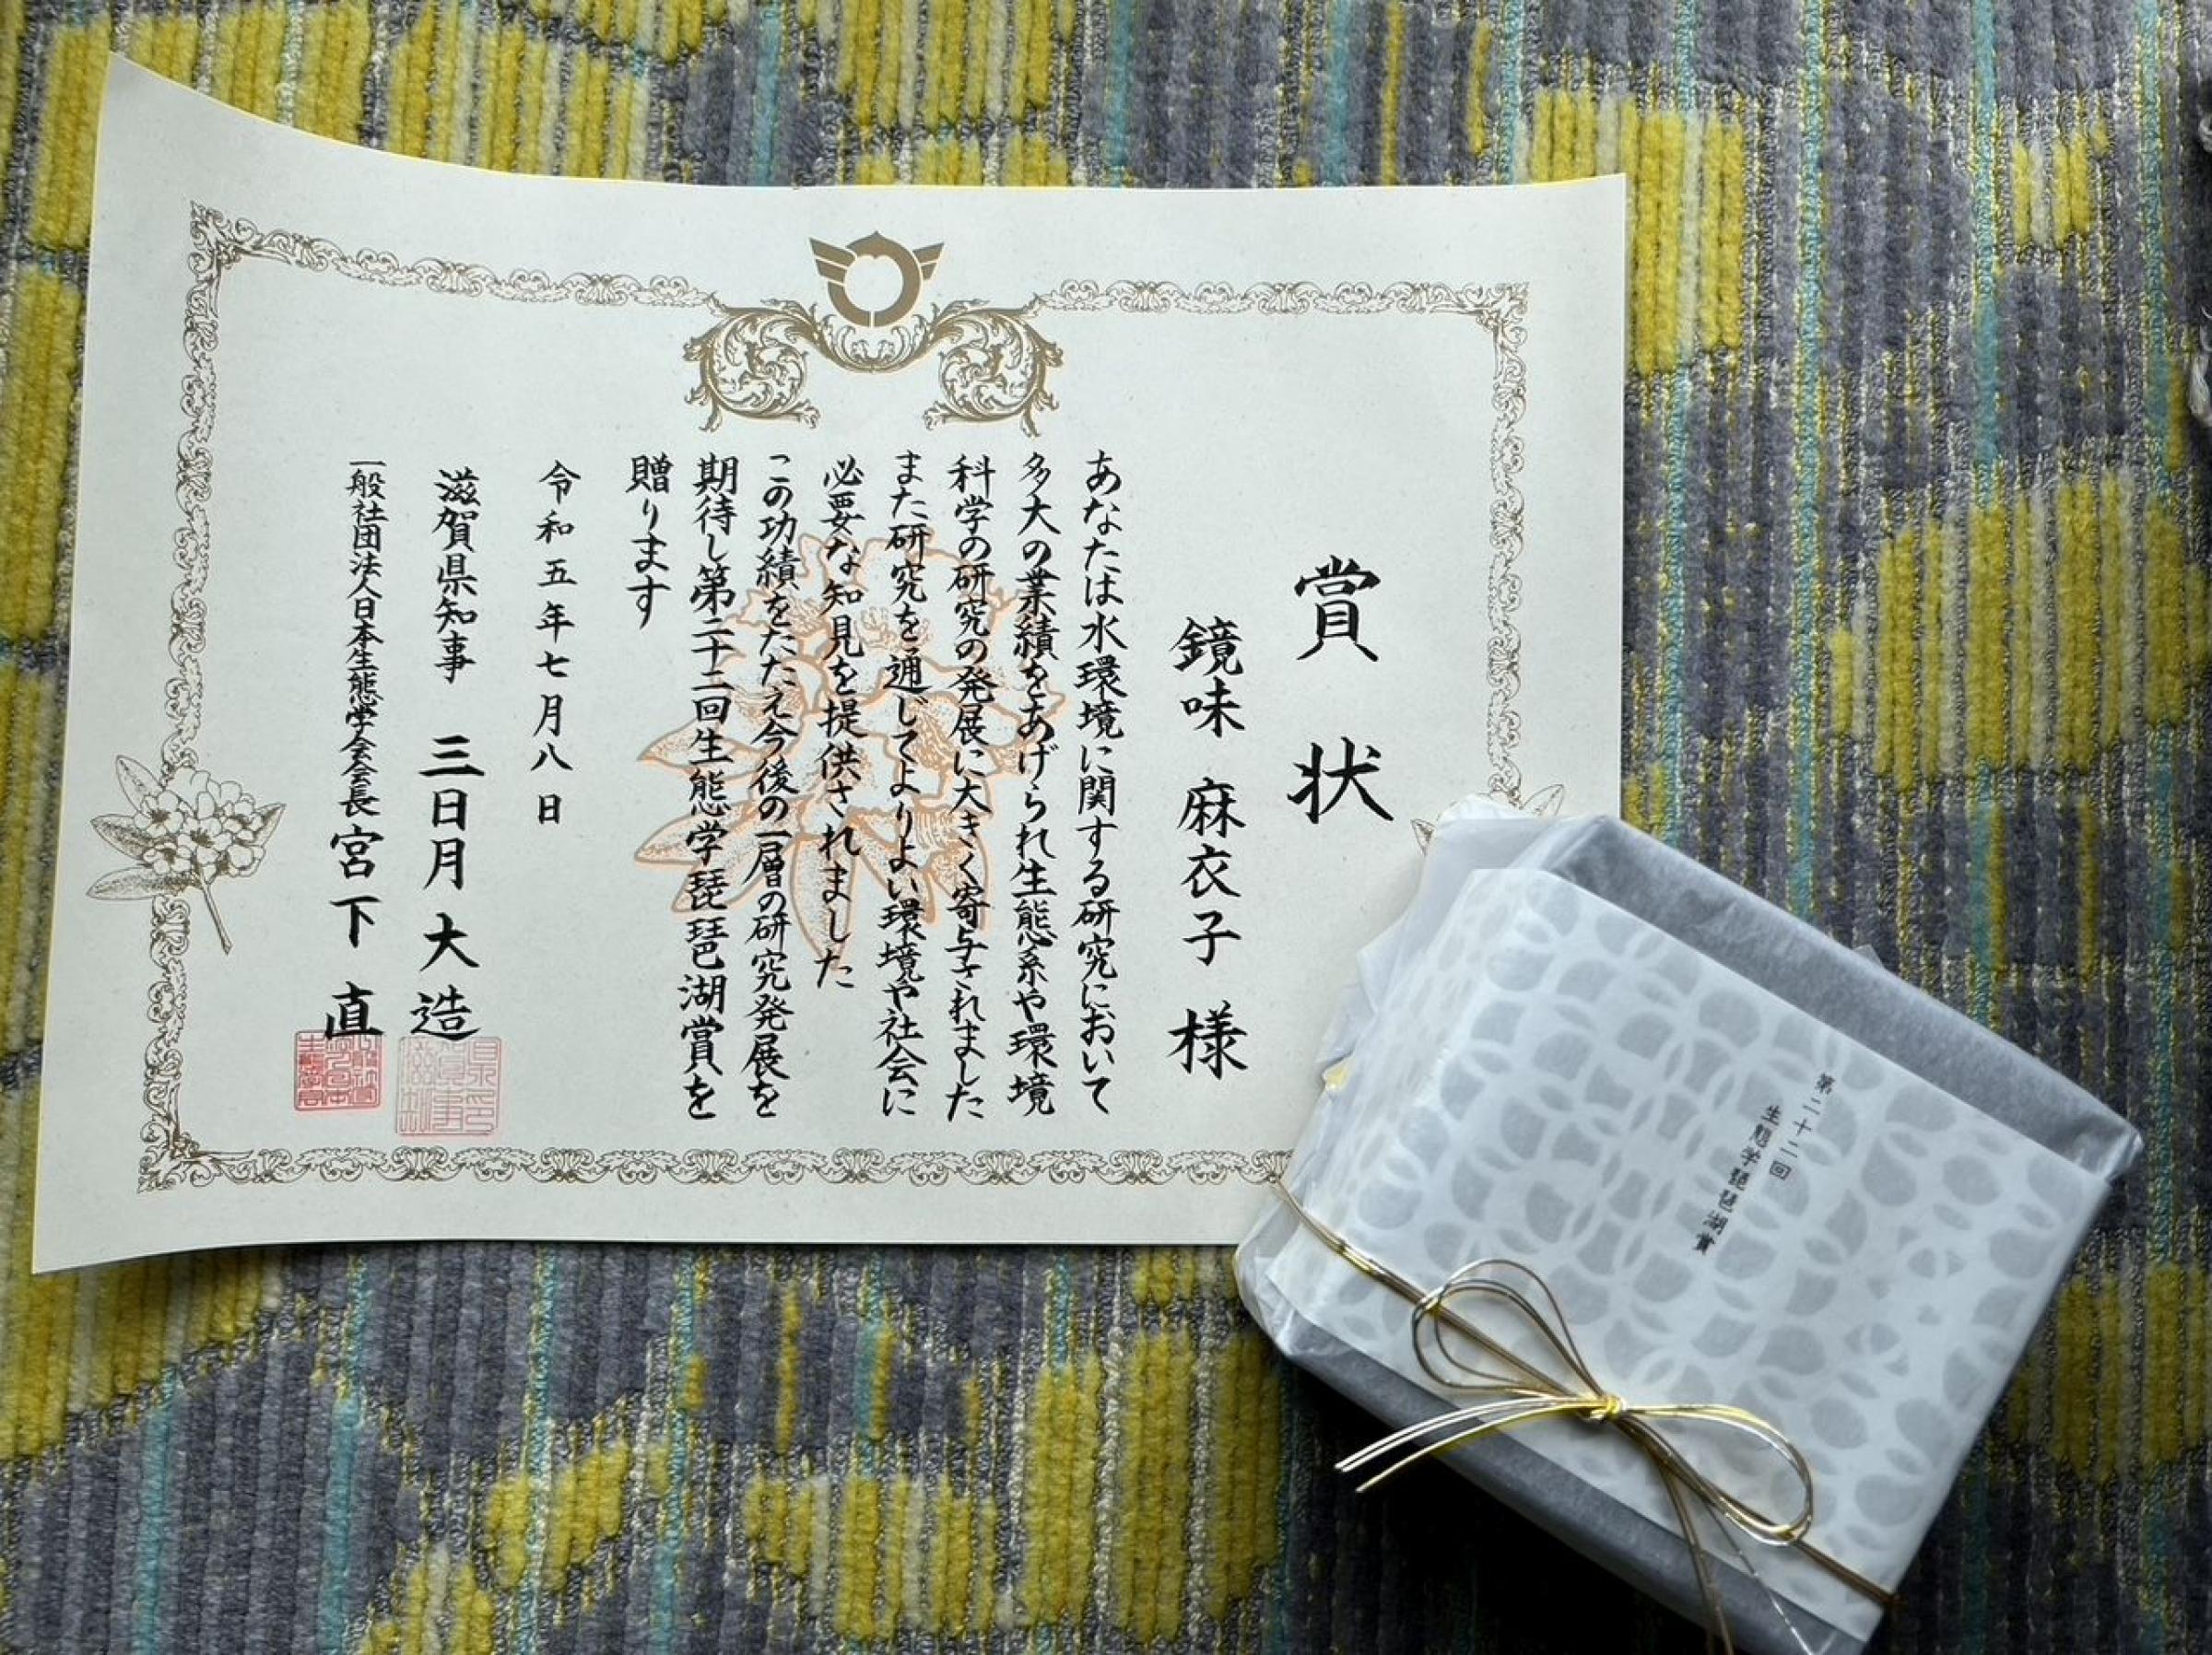 賞状
鏡味 麻衣子 様
あなたは水環境に関する研究において
多大の業績をあげられ生態系や環境
科学の研究の発展に大きく寄与されました
また研究を通じてよりよい環境や社会に
必要な知見を提供されました
この功績をたたえ今後の一層の研究発展を
期待し第二十二回生態学琵琶湖賞を
贈ります
令和五年七月八日
滋賀県知事 三日月 大造
一般社団法人日本生態学会会長 宮下 直
第二十二回
生態学琵琶湖賞